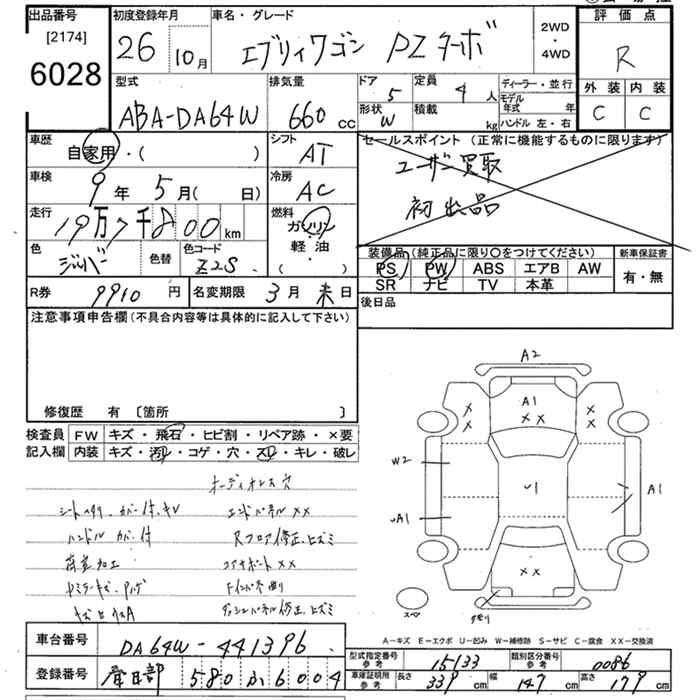 出品番号 初度登録年月 車名・グレード 2WD・4WD 評価点
[2174]
6028 26 10月 エブリィワゴン PZターボ R
型式 排気量 ドア 定員 ディーラー・並行 外装 内装
ABA-DA64W 660 cc 5 4 人 モデル年式 年 C C
形状 W 積載 kg ハンドル 左・右
車歴 シフト セールスポイント (正常に機能するものに限ります)
自家用・( ) AT ユーザー買取
車検 冷房 初出品
9 年 5 月 ( 日) AC
走行 燃料
19万7千800 km ガソリン
色 色替 色コード 軽油・
シルバー Z2S ( )
装備品 (純正品に限り〇をつけてください) 新車保証書
PS PW ABS エアB AW 有・無
SR ナビ TV 本革
R券 9910 円 名変期限 3月末日 後日品
注意事項申告欄 (不具合内容等は具体的に記入して下さい)
修復歴 有 〔箇所 〕
検査員 FW キズ・飛石・ヒビ割・リペア跡・×要
記入欄 内装 キズ・汚レ・コゲ・穴・スレ・キレ・破レ
オーディオレス穴
エンドパネル××
ハンドルカバー付 Rフロア修正、ヒズミ
コアサポート××
A2
A1
××
W2
U1
A1
UA1
××
スペア
A-キズ E-エクボ U-凹み W-補修跡 S-サビ C-腐食 XX-交換済
車台番号 DA64W-441396
登録番号 春日部 580 ふ6004
型式指定番号 参考 15133 類別区分番号 参考 0086
車庫証明用 参考 長さ 339 cm 幅 147 cm 高さ 179 cm